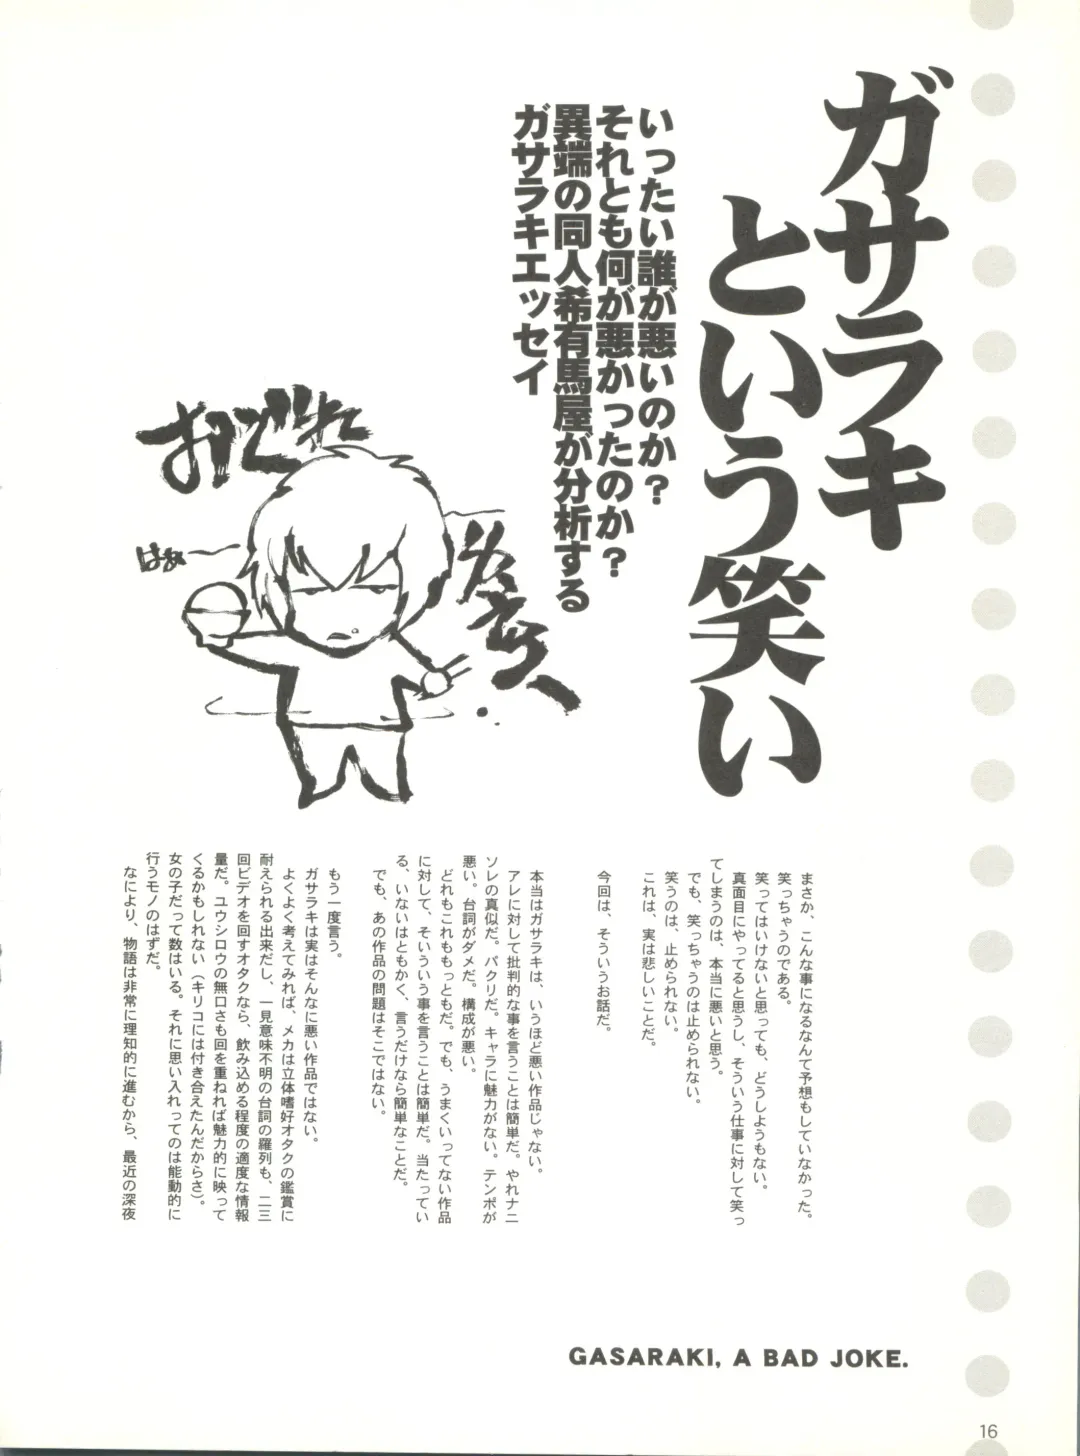 ガサラキ
という笑い
いったい誰が悪いのか？
それとも何が悪かったのか？
異端の同人希有馬屋が分析する
ガサラキエッセイ
おのでれ
はぁ〜
まさか、こんな事になるなんて予想もしていなかった。
笑っちゃうのである。
笑ってはいけないと思っても、どうしようもない。
真面目にやってると思うし、そういう仕事に対して笑っ
てしまうのは、本当に悪いと思う。
でも、笑っちゃうのは止められない。
笑うのは、止められない。
これは、実は悲しいことだ。
今回は、そういうお話だ。
本当はガサラキは、いうほど悪い作品じゃない。
アレに対して批判的な事を言うことは簡単だ。やれナニ
ソレの真似だ。パクリだ。キャラに魅力がない。テンポが
悪い。台詞がダメだ。構成が悪い。
どれもこれももっともだ。でも、うまくいってない作品
に対して、そいういう事を言うことは簡単だ。当たってい
る、いないはともかく、言うだけなら簡単なことだ。
でも、あの作品の問題はそこではない。
もう一度言う。
ガサラキは実はそんなに悪い作品ではない。
よくよく考えてみれば、メカは立体嗜好オタクの鑑賞に
耐えられる出来だし、一見意味不明の台詞の羅列も、二三
回ビデオを回すオタクなら、飲み込める程度の適度な情報
量だ。ユウシロウの無口さも回を重ねれば魅力的に映って
くるかもしれない（キリコには付き合えたんだからさ）。
女の子だって数はいる。それに思い入れってのは能動的に
行うモノのはずだ。
なにより、物語は非常に理知的に進むから、最近の深夜
GASARAKI, A BAD JOKE.
16